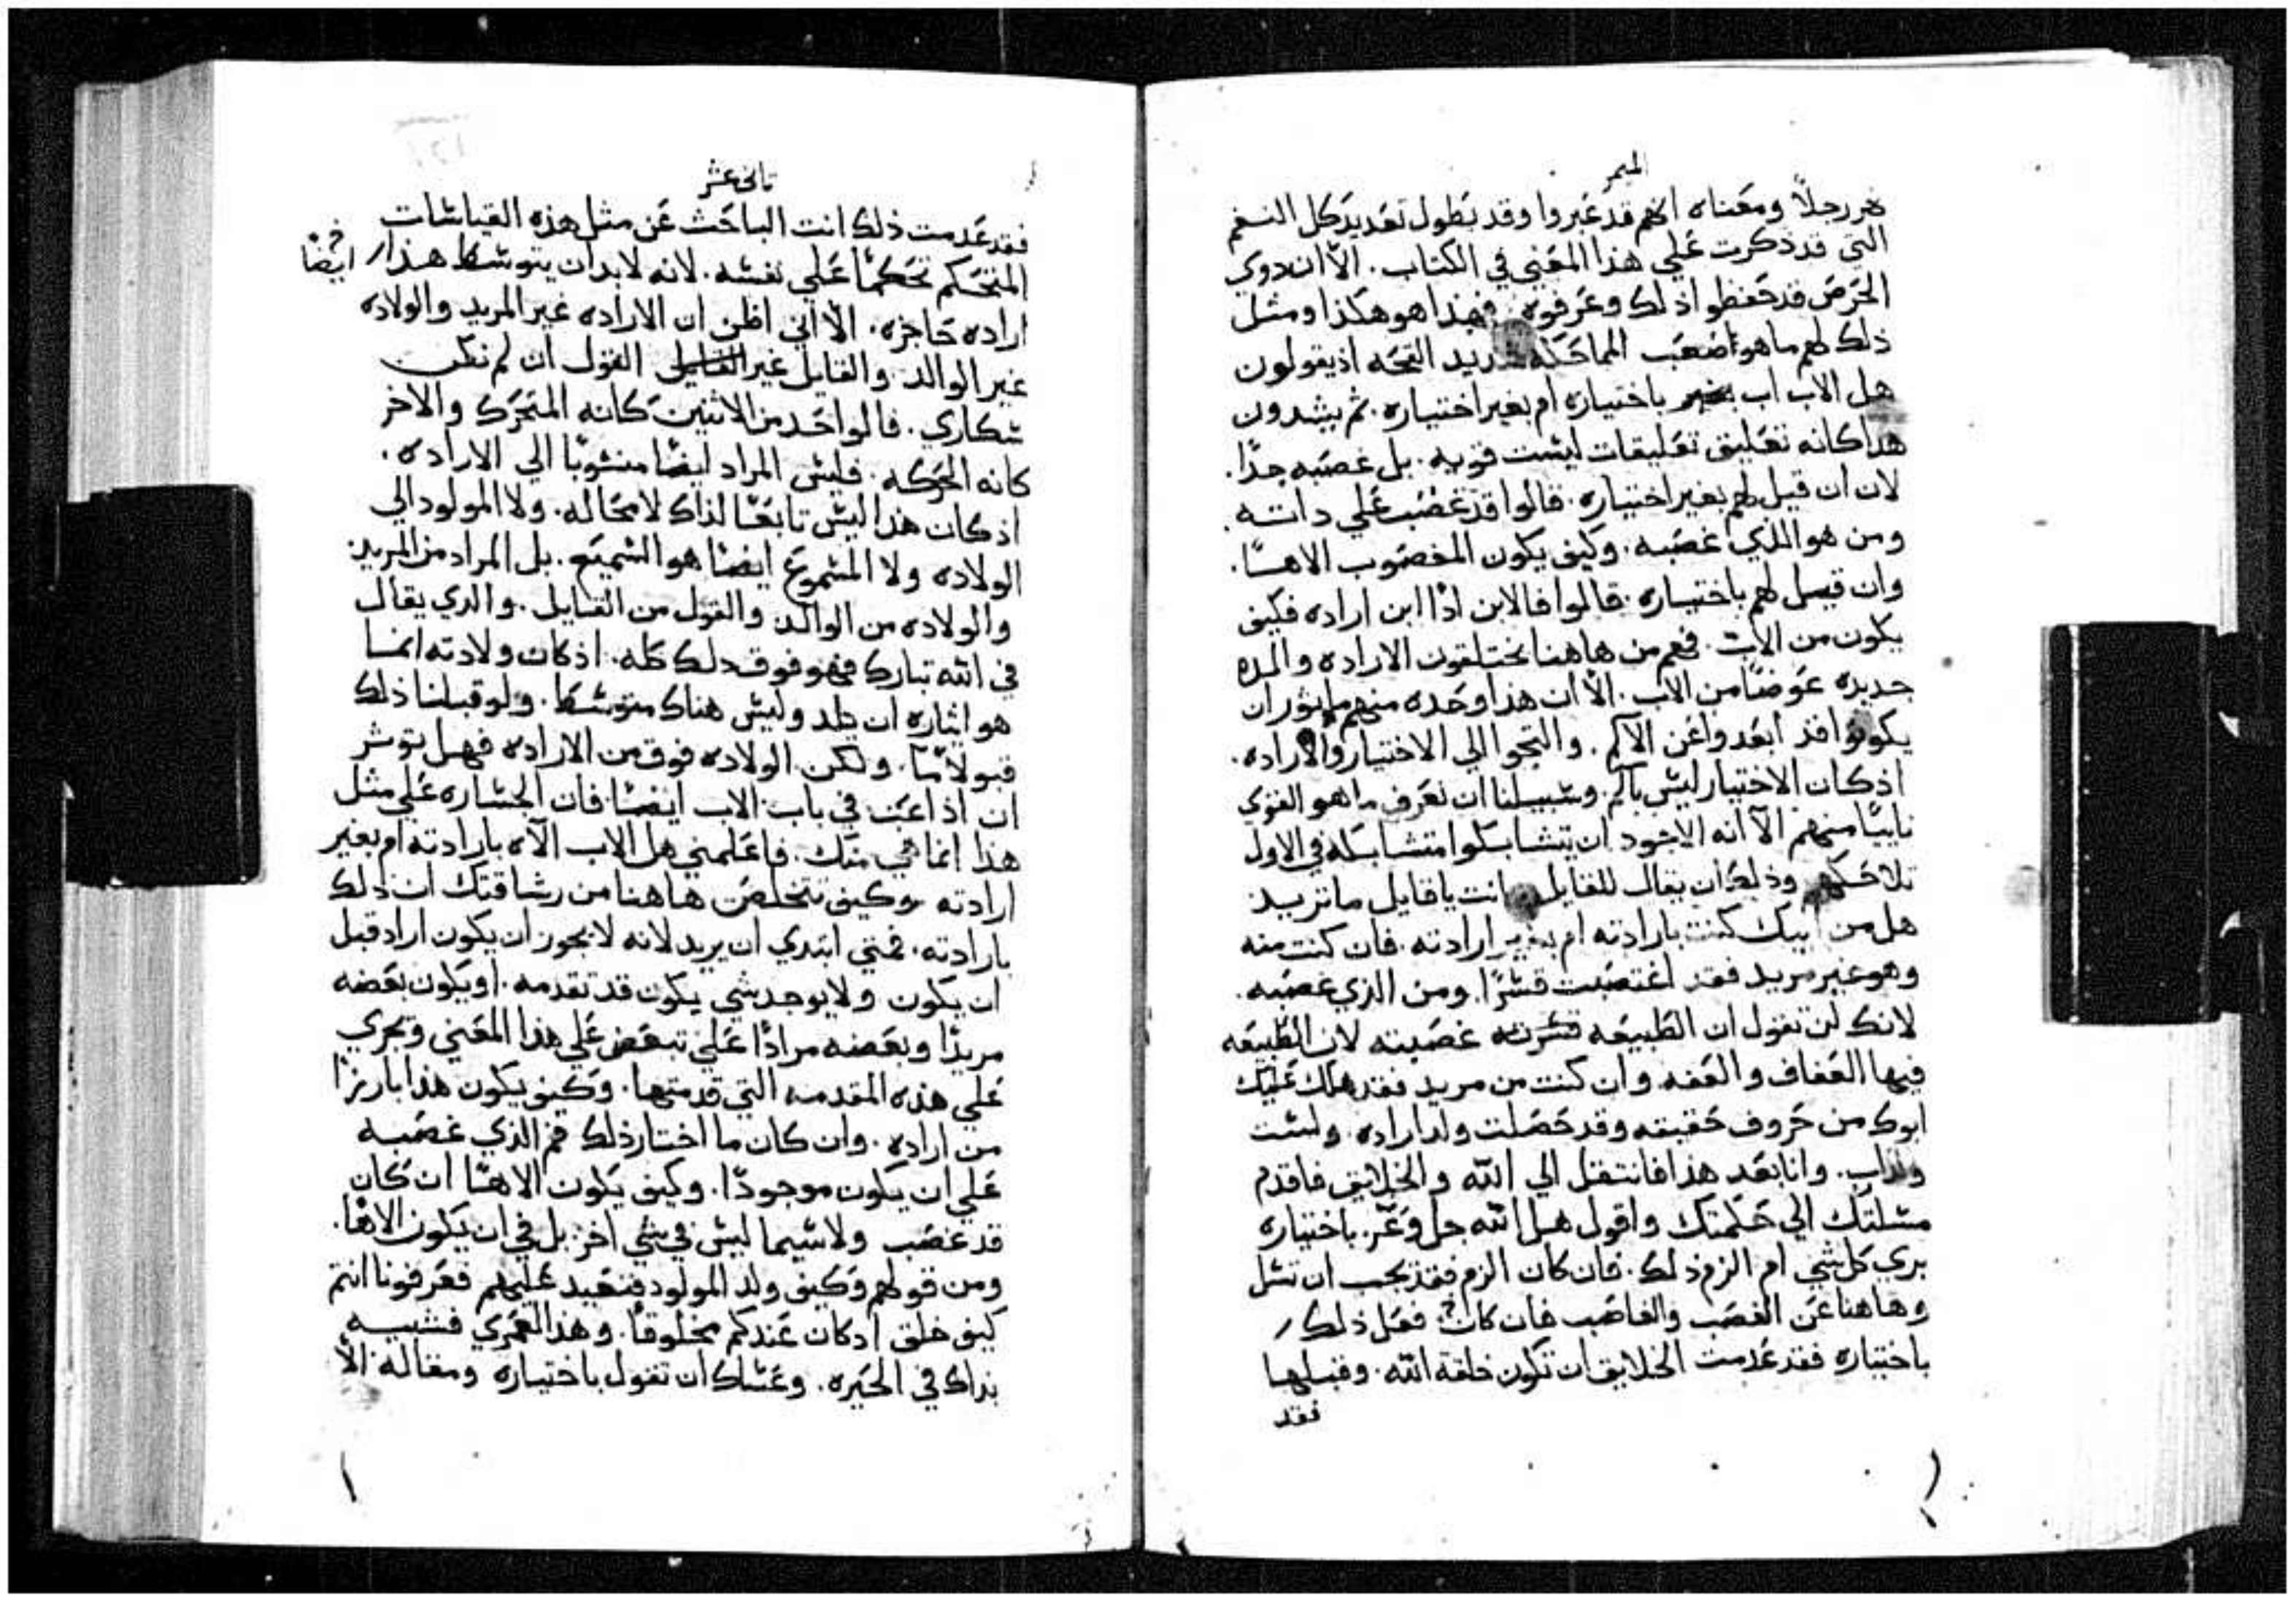 الميمر
رجلاً ومعناه انهم قد عبروا وقد يطول تعديد كل النغم
التي قد ذكرت علي هذا المعني في الكتاب. الاّ ان دوي
الحرص قد حفظوا ذلك وعرفوه فهذا هو هكذا ومثل
ذلك لهم ما هو اصعب المماحكه شديد القحه اذ يقولون
هل الاب اب باختياره ام بغير اختياره. ثم يشدون
هدا كانه تعليق تعليقات ليست قويه. بل غصبه جدًا.
لان ان قيل لهم بغير اختياره. قالوا قد غصب علي داته
ومن هو الذي غصبه. وكيف يكون المغصوب الاهًا.
وان قيل لهم باختياره. قالوا فالابن اذًا ابن اراده فكيف
يكون من الاب. فهم من هاهنا يختلقون الاراده والده
جديده عوضًا من الاب. الاّ ان هذا وحده منهم ما يوثر ان
يكونوا قد ابعدوا عن الالم. والتجوا الي الاختيار والاراده.
اذ كان الاختيار ليس بالم. وسبيلنا ان نعرف ما هو القوي
ثانيًا منهم الاّ انه الاجود ان يتشابكوا متشابكه في الاول
تلاحكهم وذلك ان يقال للقايل انت يا قايل ما تريد
هل من ابيك كنت بارادته ام بغير ارادته. فان كنت منه
وهو غير مريد فقد اغتصبت قسرًا. ومن الذي غصبه.
لانك لن تقول ان الطبيعه قسرته غصبته لان الطبيعه
فيها العفاف والعفه وان كنت من مريد فقد هلك عليك
ابوك من حروف حقيقته وقد حصلت ولد اراده ولست
ولد اب. وانا بعد هذا فانتقل الي الله والخلايق فاقدم
مسلتك الي حكمتك واقول هل الله جل وعز. باختياره
بري كل شي ام الزم ذلك. فان كان الزم فقد يجب ان تسل
وهاهنا عن الغصب والغاصب فان كان فعل ذلك
باختياره فقد عدمت الخلايق ان تكون خلقة الله. وقبلها
فقد
ثاني عشر
فقد عدمت ذلك انت الباحث عن مثل هذه القياسات
المتحكم تحكمًا علي نفسه. لانه لابد ان يتوسط هذا ايضًا
اراده حاجزه. الاّ اني اظن ان الاراده غير المريد والولاده
غير الوالد. والقايل غير القول ان لم نكن
سكاري. فالواحد من الاثنين كانه المتحرك والاخر
كانه الحركه. فليس المراد ايضًا منسوبًا الي الاراده.
اذ كان هذا ليس تابعًا لذاك لا محاله. ولا المولود الي
الولاده ولا المسموع ايضًا هو السميع. بل المراد من المريد
والولاده من الوالد والقول من القايل. والدي يقال
في الله تبارك فهو فوق دلك كله. اذ كان ولادته انما
هو ايثاره ان يلد وليس هناك متوسطًا. ولو قبلنا ذلك
قبولاً ما. ولكن الولاده فوق من الاراده فهل توثر
ان اذاعبت في باب الاب ايضًا فان الجساره علي مثل
هذا انما هي منك. فاعلمني هل الاب الاه بارادته ام بغير
ارادته وكيف تتخلص هاهنا من رشاقتك ان ذلك
بارادته. فمتي ابتدي ان يريد لانه لا يجوز ان يكون اراد قبل
ان يكون ولا يوجد شي يكون قد تقدمه. او يكون بعضه
مريدًا وبعضه مرادًا علي تبعض علي هذا المعني وتجري
علي هذه المقدمه التي قدمتها. وكيف يكون هذا بارزًا
من اراده. وان كان ما اختار ذلك فمن الذي غصبه
علي ان يكون موجودًا. وكيف يكون الاهًا ان كان
قد غصب ولاسيما ليس في شي اخر بل في ان يكون الاهًا.
ومن قولهم وكيف ولد المولود فنعيد عليهم فعرفونا انتم
كيف خلق ادكان عندكم مخلوقًا. وهذا لعمري فشبيه
بذاك في الحيره. وعساك ان تقول باختياره ومقالة الاّ